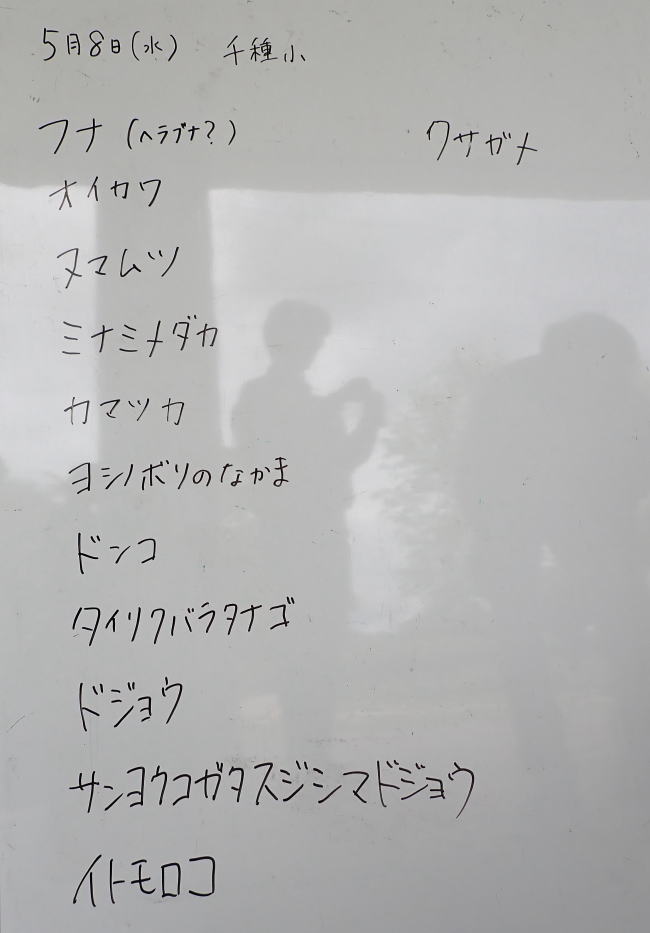 5月8日(水) 千種小
フナ (ヘラブナ?)
クサガメ
オイカワ
ヌマムツ
ミナミメダカ
カマツカ
ヨシノボリのなかま
ドンコ
タイリクバラタナゴ
ドジョウ
サンヨウコガタスジシマドジョウ
イトモロコ